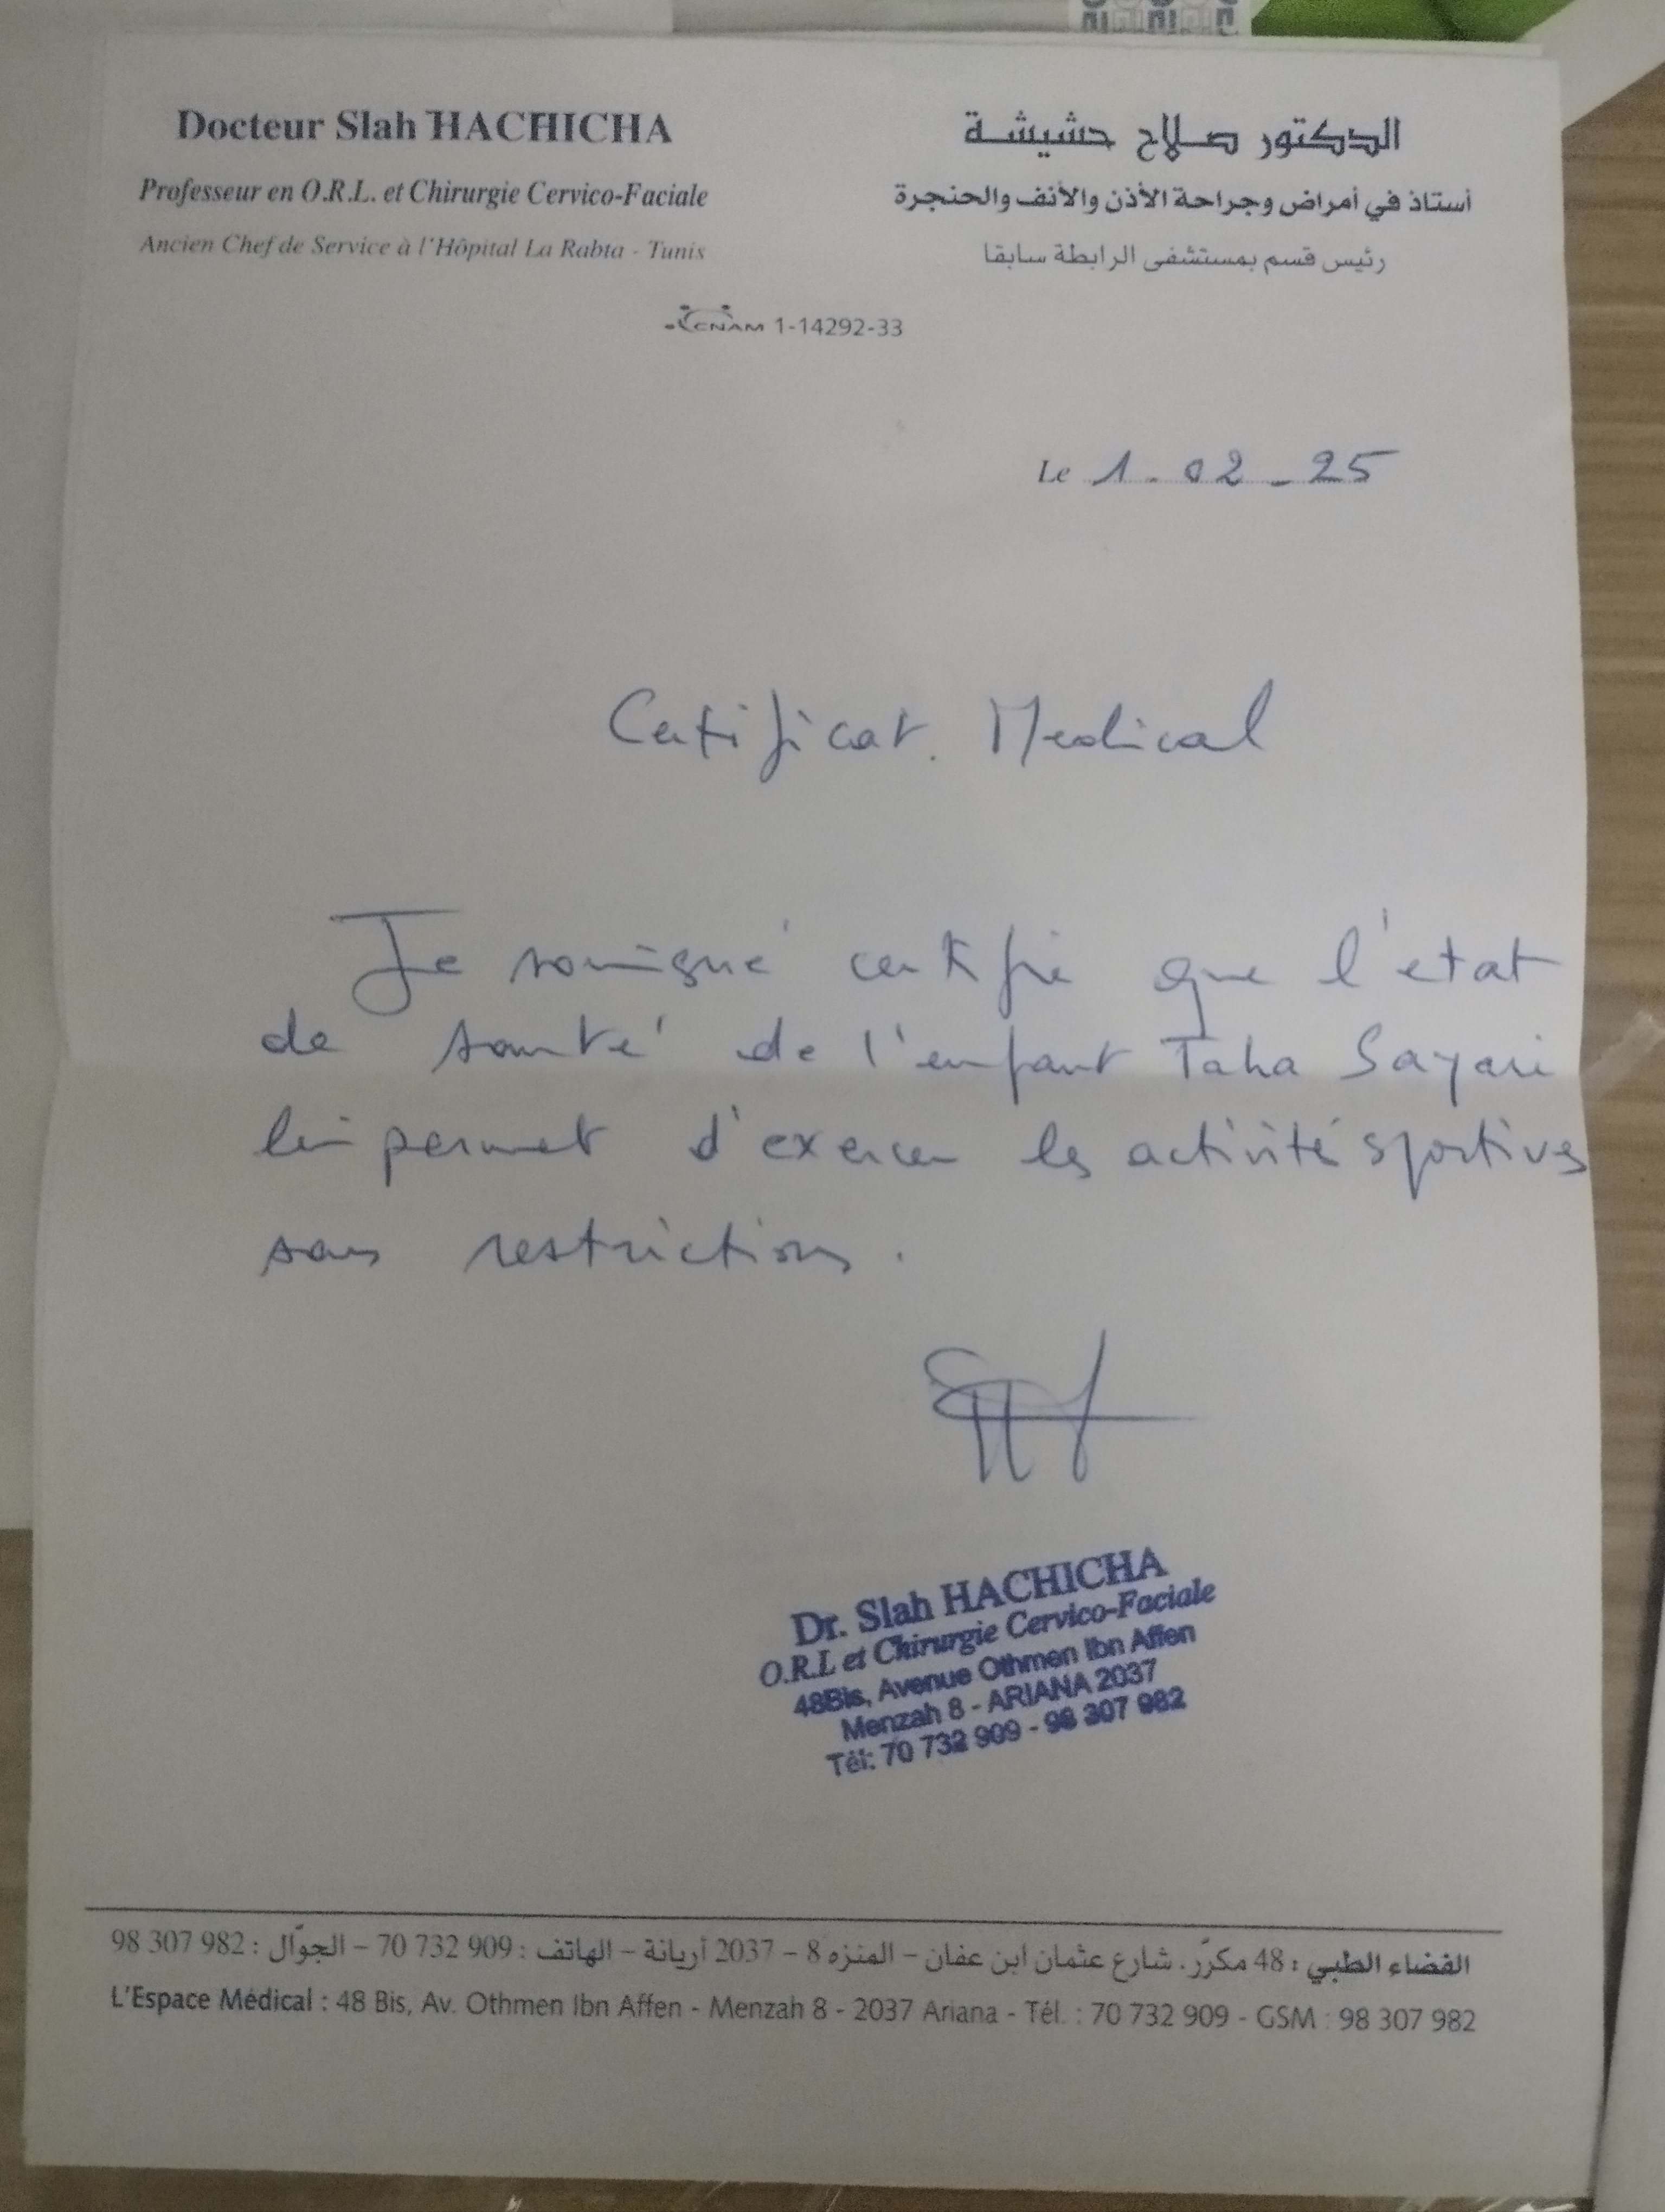 Docteur Slah HACHICHA
Professeur en O.R.L. et Chirurgie Cervico-Faciale
Ancien Chef de Service à l'Hôpital La Rabta - Tunis
الدكتور صلاح حشيشة
أستاذ في أمراض وجراحة الأذن والأنف والحنجرة
رئيس قسم بمستشفى الرابطة سابقا
CNAM 1-14292-33
Le 1.02-25
Certificat. Medical
Je soussigné certifie que l'état
de santé de l'enfant Taha Sayari
lui permet d'exercer les activité sportives
sans restrictions.
Dr. Slah HACHICHA
O.R.L et Chirurgie Cervico-Faciale
48Bis, Avenue Othmen Ibn Affen
Menzah 8 - ARIANA 2037
Tél: 70 732 909 - 98 307 982
الفضاء الطبي : 48 مكرّر. شارع عثمان ابن عفان – المنزه 8 – 2037 أريانة – الهاتف : 909 732 70 – الجوّال : 982 307 98
L'Espace Médical : 48 Bis, Av. Othmen Ibn Affen - Menzah 8 - 2037 Ariana - Tél. : 70 732 909 - GSM : 98 307 982